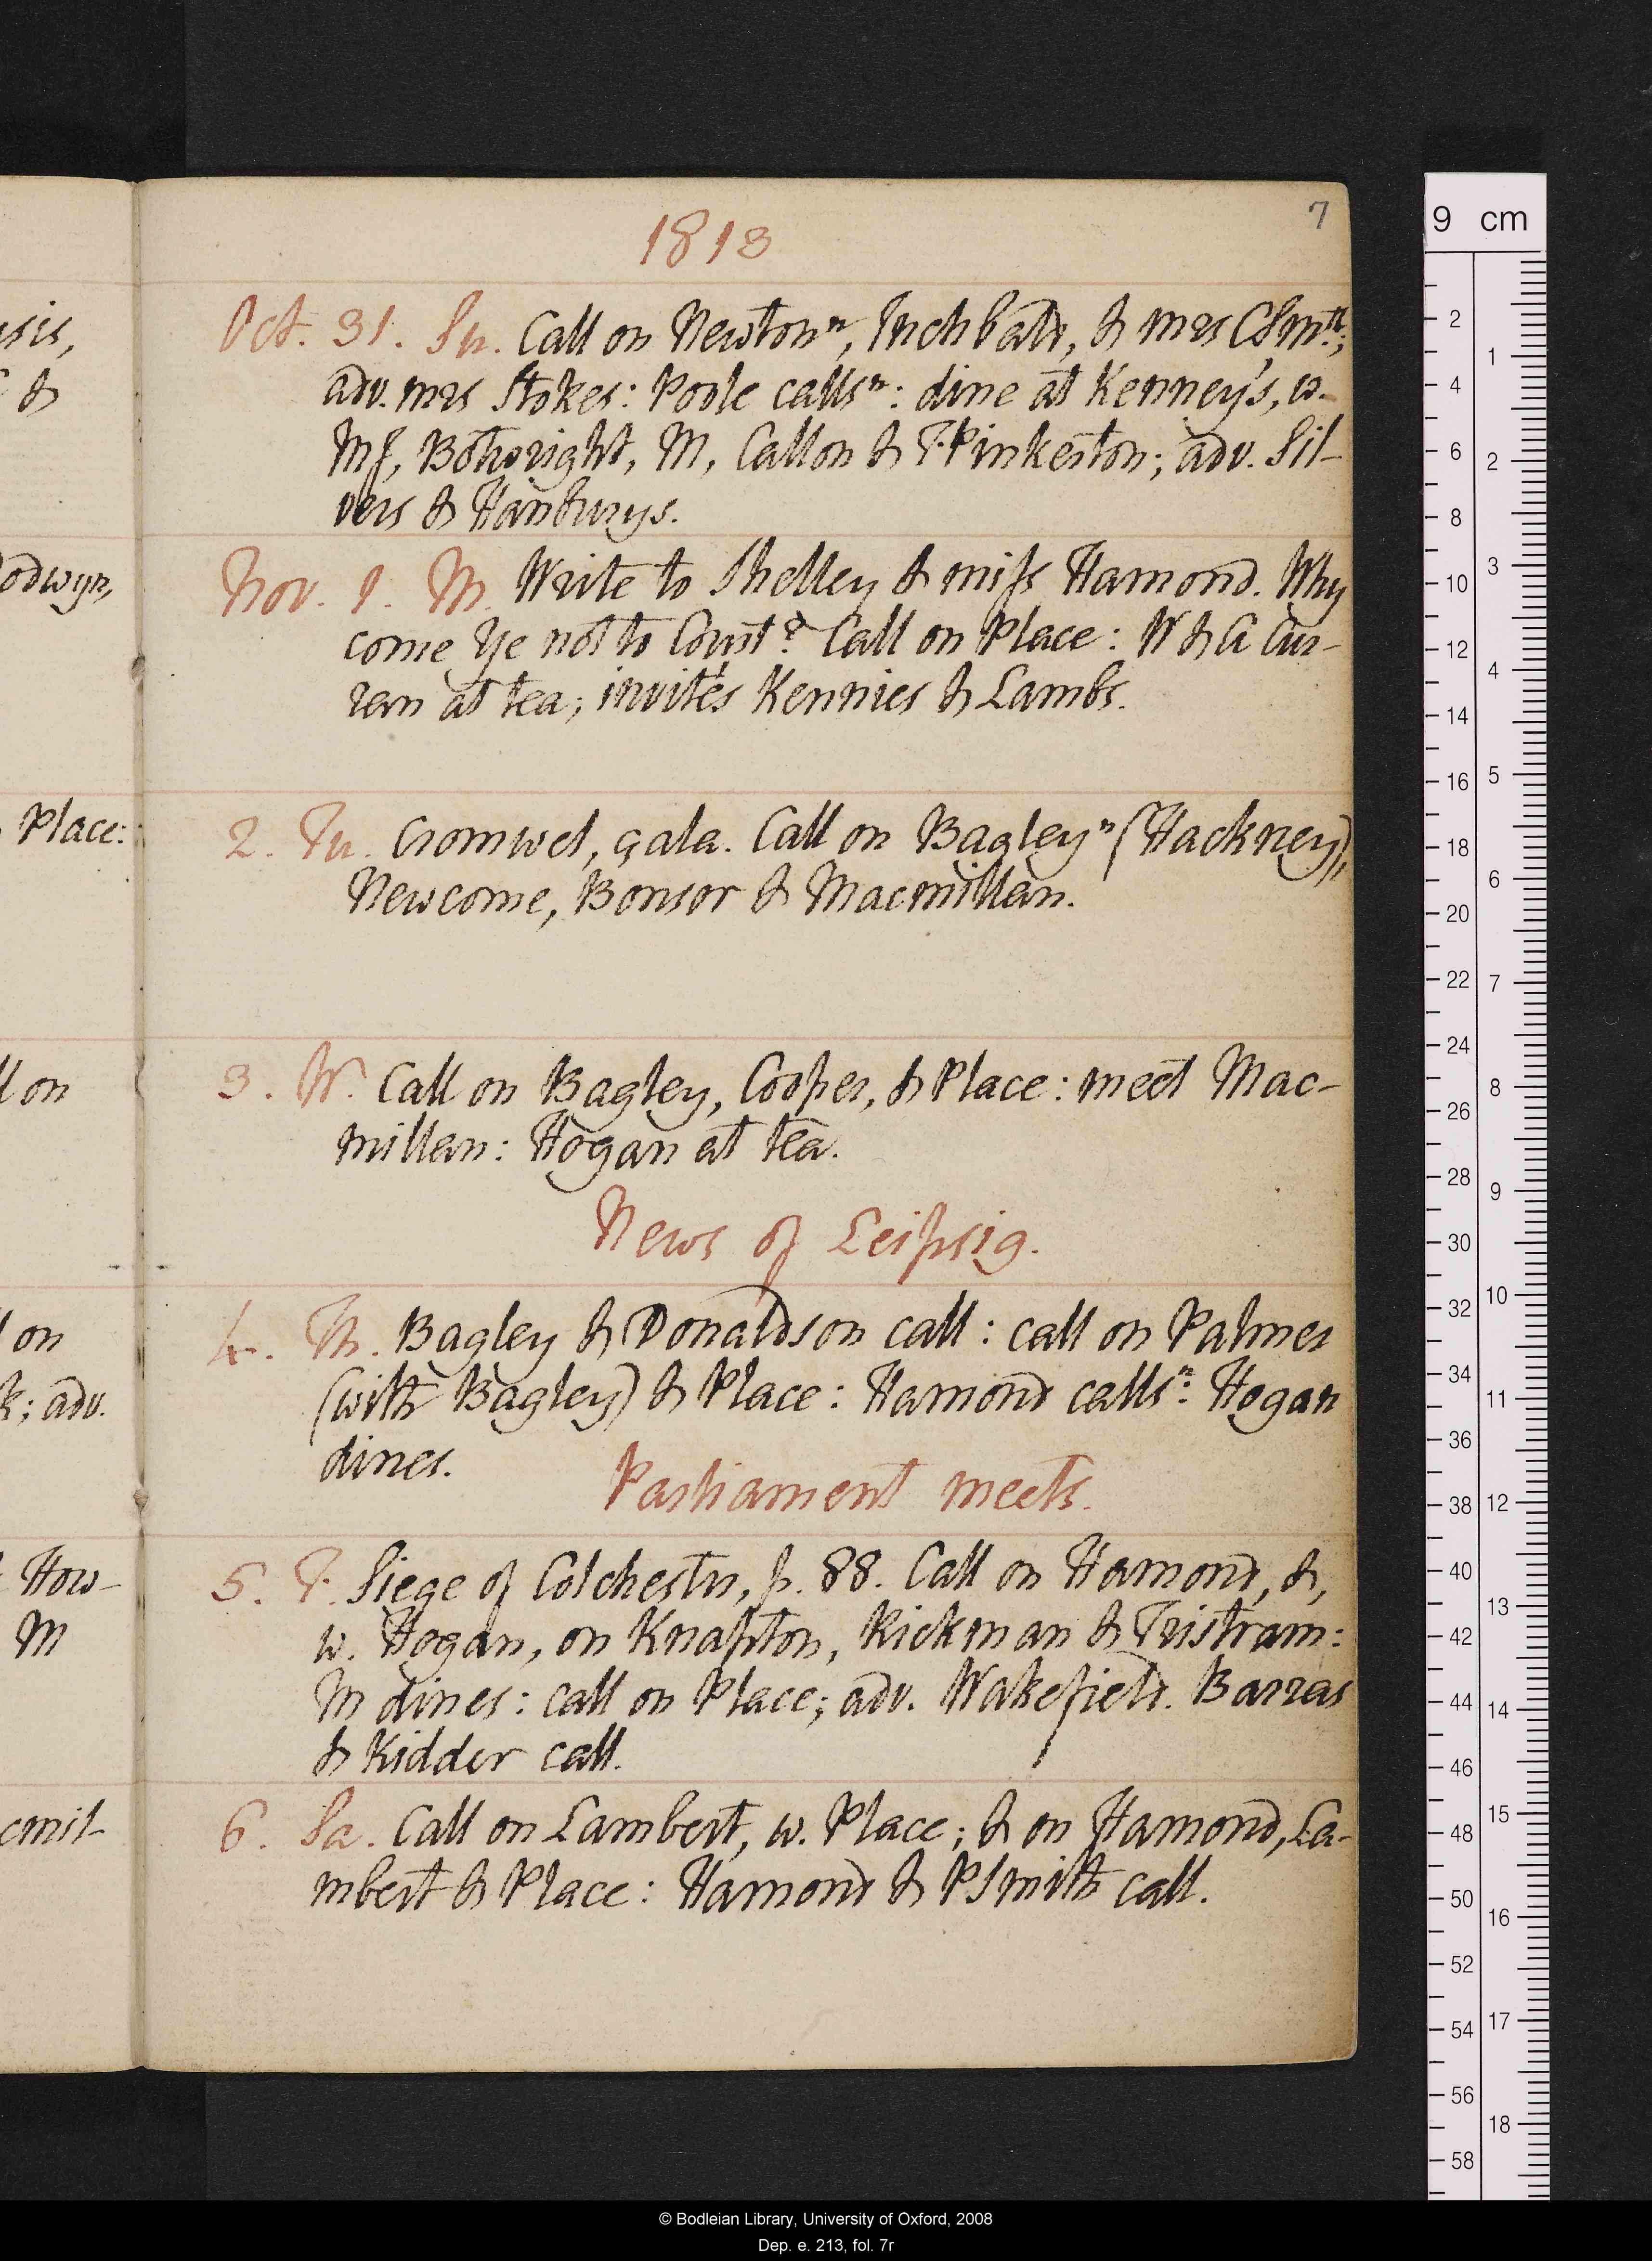 7
1813
Oct. 31. Su. Call on Newtonⁿ, Inchbald, & mrs CSmᵗʰ;
adv. mrs Stokes: Poole callsⁿ: dine at Kenney's, w.
MJ, Bothwright, M, Callon & T. Pinkerton; adv. Sil-
vers & Hanburys.
Nov. 1. M. Write to Shelley & miss Hamond. Why
come Ye not to Court? Call on Place: W & A Cur-
ran at tea; invités Kennies & Lambs.
2. Tu. Cromwel, çala. Call on Bagleyⁿ (Hackney),
Newcome, Bonsor & Macmillan.
3. W. Call on Bagley, Cooper, & Place: meet Mac-
millan: Hogan at tea.
News of Leipsig.
4. Th. Bagley & Donaldson call: call on Palmer
(with Bagley) & Place: Hamond callsⁿ: Hogan
dines.
Parliament meets.
5. F. Siege of Colchester, p. 88. Call on Hamond, &,
w. Hogan, on Knapton, Rickman & Tristram:
M dines: call on Place; adv. Wakefield. Barras
& Kidder call.
6. Sa. Call on Lambert, w. Place; & on Hamond, La-
mbert & Place: Hamond & PSmith call.
sis,
&
odwyn,
Place:
ll on
l on
k; adv.
How-
M
cmil-
9 cm
2
4
6
8
10
12
14
16
18
20
22
24
26
28
30
32
34
36
38
40
42
44
46
48
50
52
54
56
58
1
2
3
4
5
6
7
8
9
10
11
12
13
14
15
16
17
18
© Bodleian Library, University of Oxford, 2008
Dep. e. 213, fol. 7r